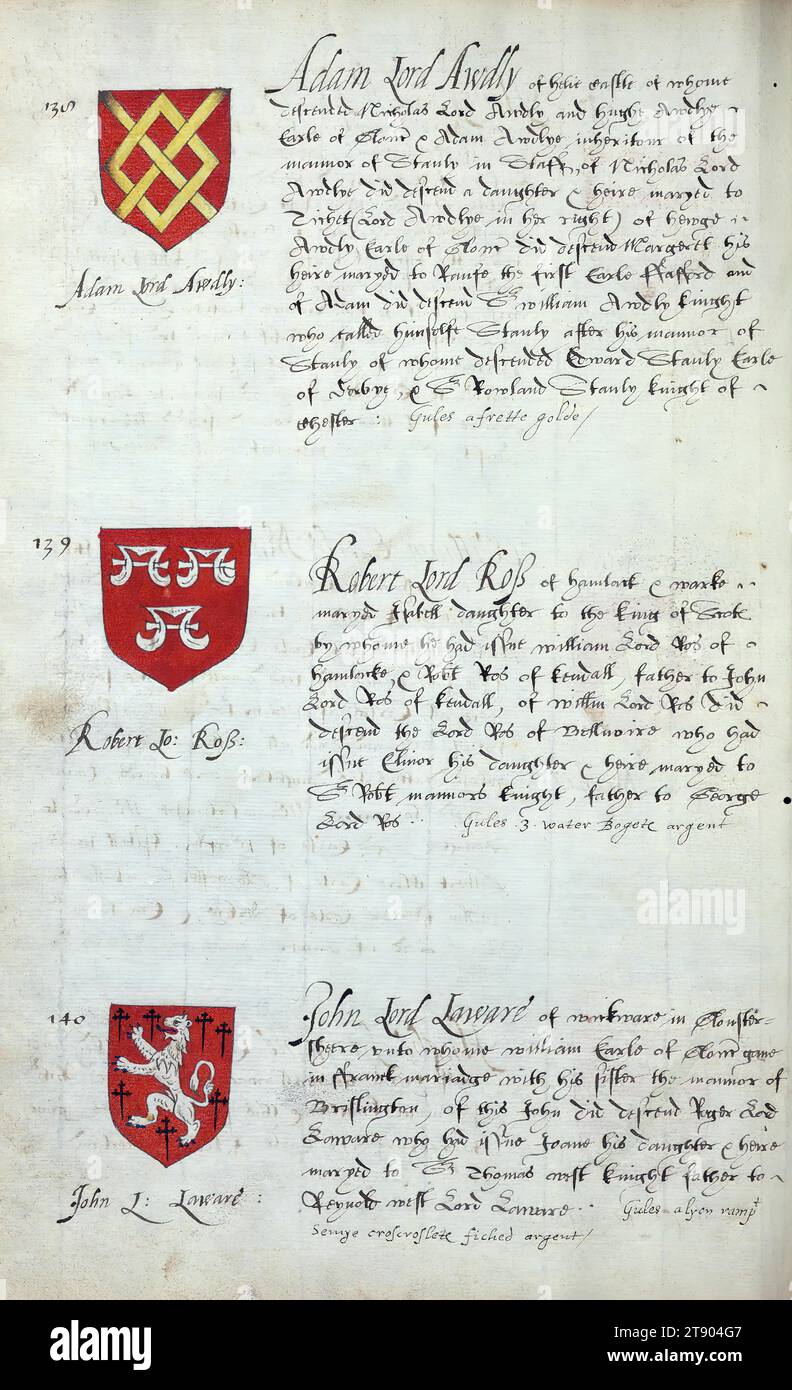 138
Adam Lord Awdly of helie Castle of whome
descended Nicholas Lord Awdly and hughe Awdlye
Earle of Glouc & Adam Awdlye inheritour of the
mannor of Stanly in Staff, of Nicholas Lord
Awdlye did descend a daughter & heire maryed to
Tichet (Lord Awdlye in her right) of hewge
Awdly Earle of Glouc did descend Margeret his
heire maryed to Raufe the first Earle Stafford and
of Adam did descend Sr william Awdly knight
who called himselfe Stanly after his mannor of
Stanly of whome descended Edward Stanly Earle
of Derbye, & Sr Rowland Stanly knight of
Chester : Gules a frette golde /
Adam Lord Awdly:
139
Robert Lord Roß of hamlock & warke
maryed Isabell daughter to the king of Scots
by whome he had issue william Lord Ros of
hamlocke, & Robt Ros of kendall, father to John
Lord Ros of kendall, of willm Lord Ros did
descend the Lord Ros of Bellvoire who had
issue Elinor his daughter & heire maryed to
Sr Robt mannors knight, father to George
Lord Ros .. Gules .3. water Bogets argent
Robert Lo: Roß:
140
John Lord Laware of workware in Glouster-
sheere, unto whome william Earle of Glouc gave
in ffranck mariadge with his sister the mannor of
Brislington, of this John did descend Roger Lord
Laware who had issue Joane his daughter & heire
maryed to Sr Thomas west knight father to
Reynold west Lord Laware .. Gules a lyon rampt
Semye croscroslets fiched argent /
John L: Laware :
alamy
alamy
Image ID: 2T904G7
www.alamy.com